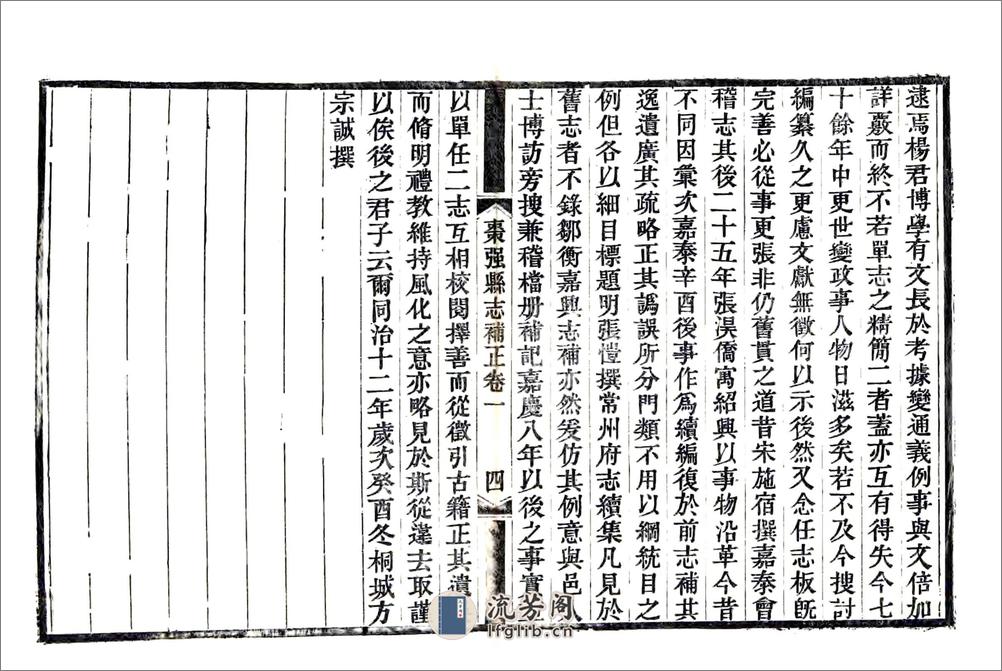 逮焉楊君博學有文長於考據變通義例事與文倍加
詳覈而終不若單志之精簡二者蓋亦互有得失今七
十餘年中更世變政事人物日滋多矣若不及今搜討
編纂久之更慮文獻無徵何以示後然又念任志板旣
完善必從事更張非仍舊貫之道昔宋施宿撰嘉泰會
稽志其後二十五年張淏僑寓紹興以事物沿革今昔
不同因彙次嘉泰辛酉後事作爲續編復於前志補其
逸遺廣其疏略正其譌誤所分門類不用以綱統目之
例但各以細目標題明張愷撰常州府志續集凡見於
舊志者不錄鄒衡嘉興志補亦然爰仿其例意與邑人
士博訪旁搜兼稽檔册補記嘉慶八年以後之事實
棗强縣志補正卷一
四
以單任二志互相校閱擇善而從徵引古籍正其遺
而脩明禮教維持風化之意亦略見於斯從違去取謹
以俟後之君子云爾同治十二年歲次癸酉冬桐城方
宗誠撰
流芳阁
lfglib.cn